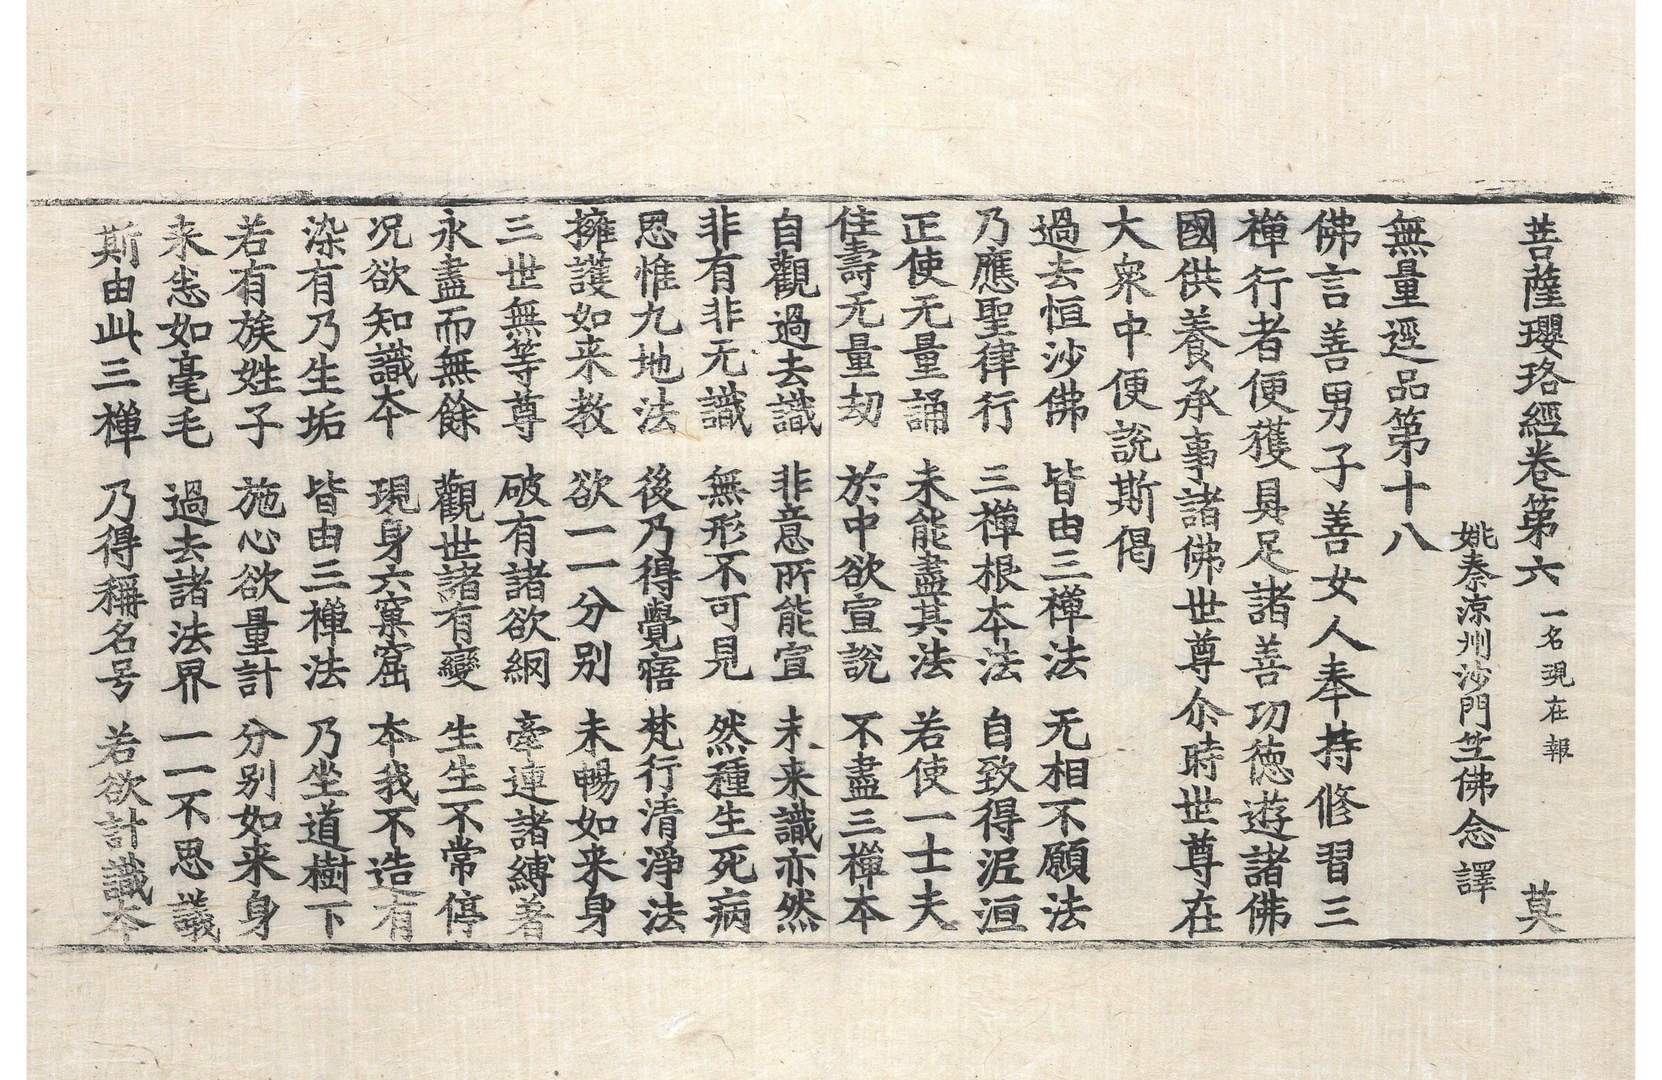 菩薩瓔珞經卷第六 一名現在報 莫
姚秦涼州沙門竺佛念譯
無量逕品第十八
佛言善男子善女人奉持修習三
禅行者便獲具足諸善功徳遊諸佛
國供養承事諸佛世尊尒時世尊在
大衆中便說斯偈
過去恒沙佛 皆由三禅法 无相不願法
乃應聖律行 三禅根本法 自致得泥洹
正使无量誦 未能盡其法 若使一士夫
住壽无量劫 於中欲宣說 不盡三禅本
自觀過去識 非意所能宣 未来識亦然
非有非无識 無形不可見 然種生死病
思惟九地法 後乃得覺寤 梵行清淨法
擁護如来教 欲一一分別 未暢如来身
三世無等尊 破有諸欲網 牽連諸縛著
永盡而無餘 觀世諸有變 生生不常停
况欲知識本 現身六窠窟 本我不造有
染有乃生垢 皆由三禅法 乃坐道樹下
若有族姓子 施心欲量計 分別如来身
来恙如毫毛 過去諸法界 一一不思議
斯由此三禅 乃得稱名号 若欲計識本